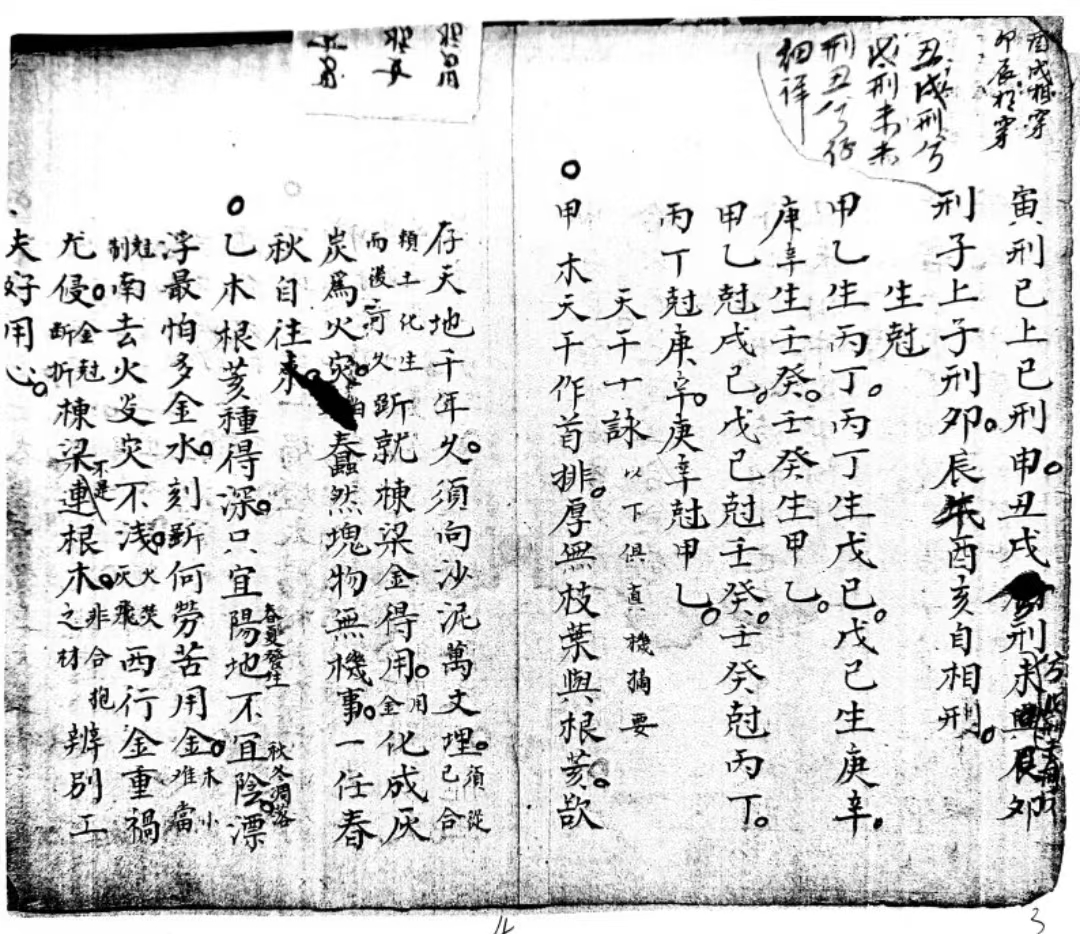 酉戌相穿
卯辰相穿
丑戌刑兮
戌刑未未
刑丑兮仔
細詳
寅刑巳上巳刑申丑戌刑未
刑子上子刑卯辰午酉亥自相刑
生尅
甲乙生丙丁丙丁生戊己戊己生庚辛
庚辛生壬癸壬癸生甲乙
甲乙尅戊己戊己尅壬癸壬癸尅丙丁
丙丁尅庚辛庚辛尅甲乙
天干十詠以下俱真機摘要
甲木天干作首排厚無枝葉與根荄欲
存天地千年久須向沙泥萬丈埋須從己合
類土化生而後可久斲就棟梁金得用用金化成灰
炭爲火灾蠢然塊物無機事一任春
秋自往來
乙木根荄種得深只宜陽地春夏發生不宜陰秋冬凋落漂
浮最怕多金水刻斲何勞苦用金木小難當
尅制南去火炎灾不浅火焚灰飛西行金重禍
尤侵金尅斷折棟梁不是連根木非合抱之材辨別工
夫好用心